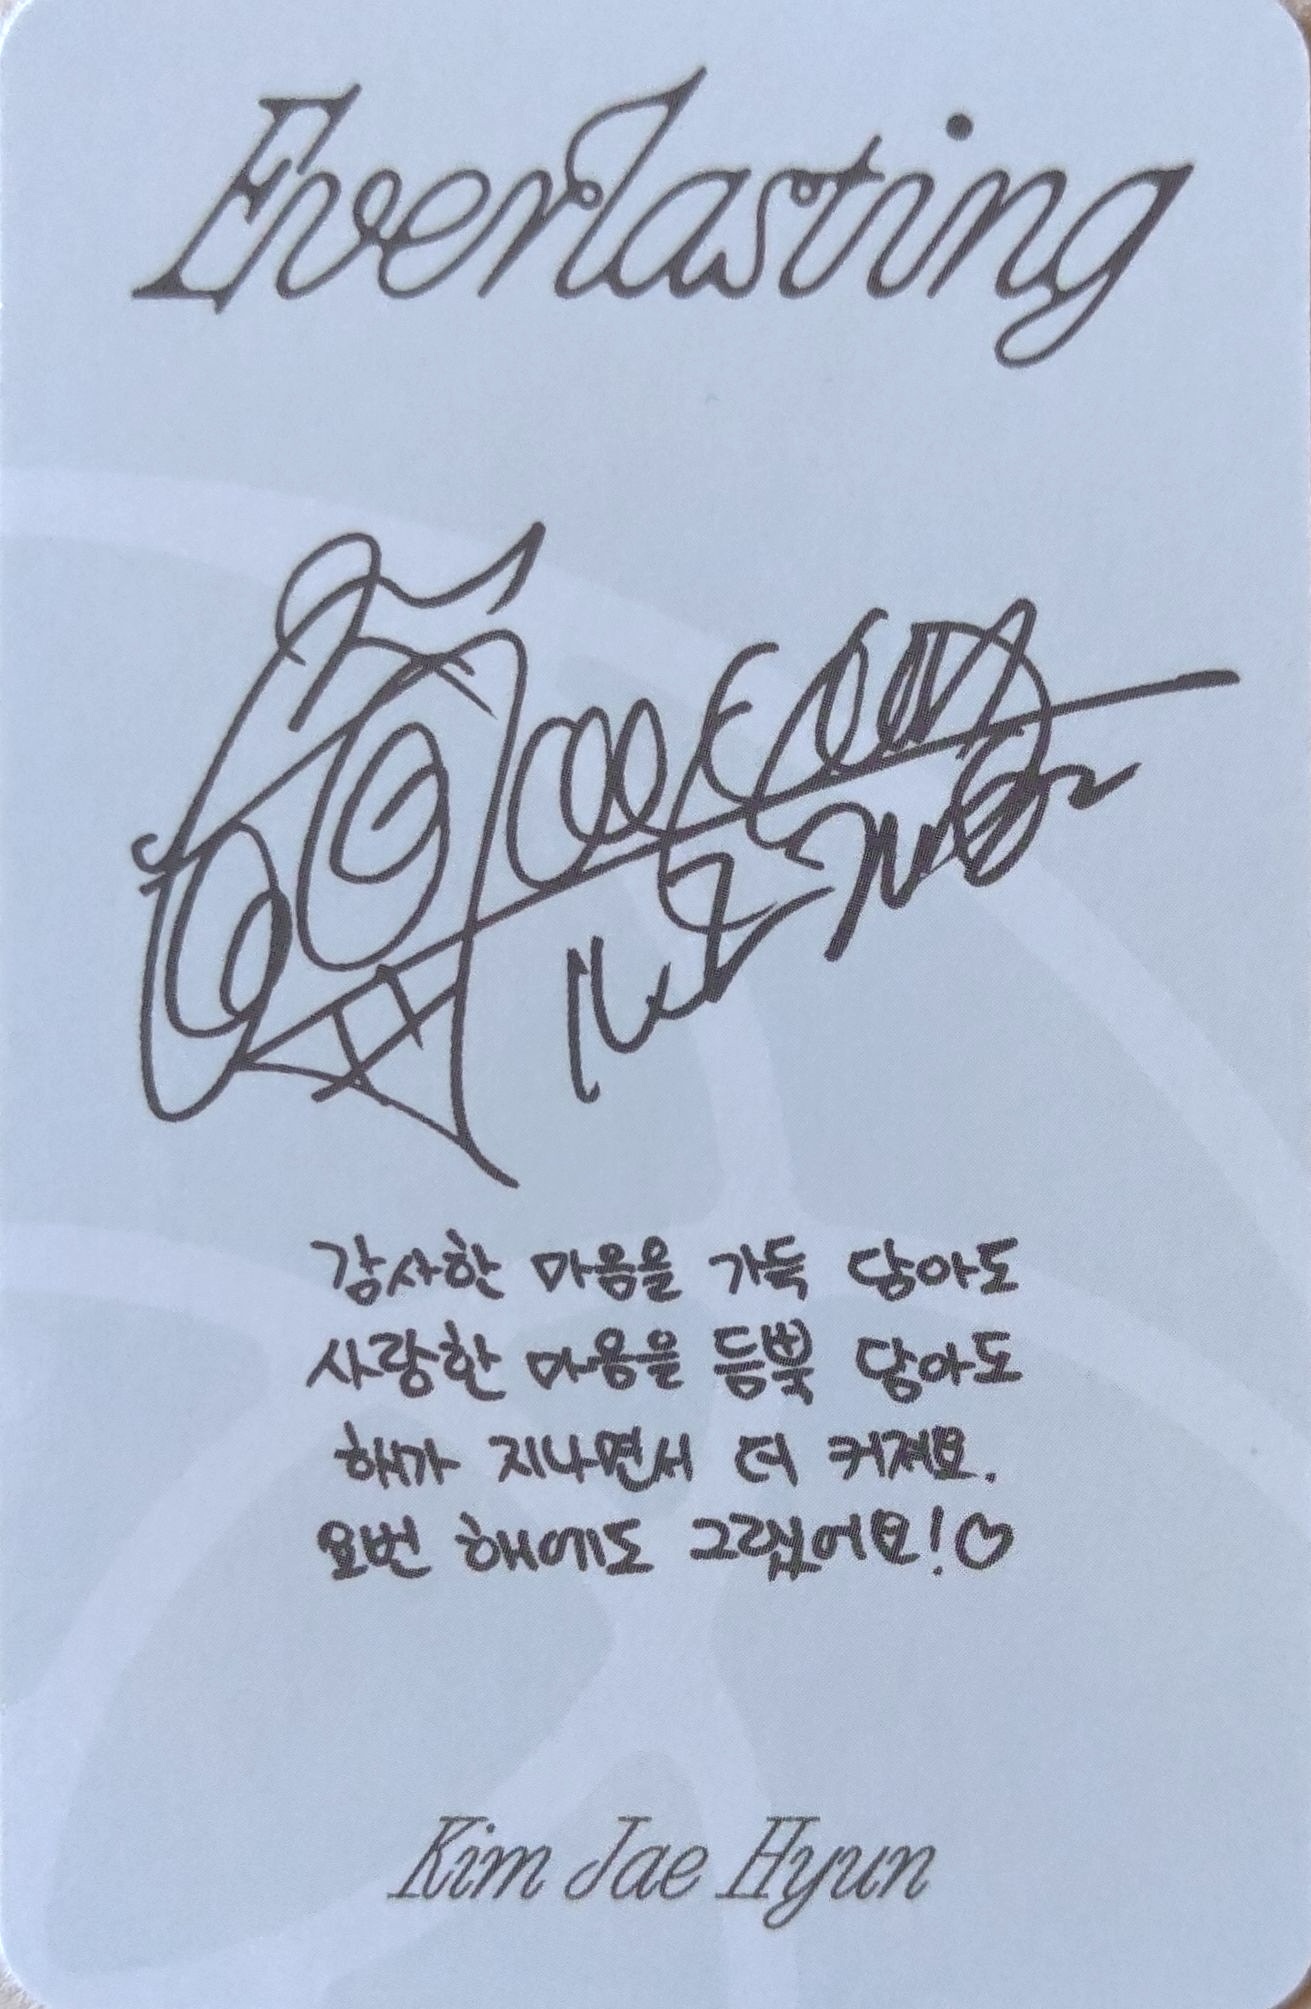 Everlasting
감사한 마음을 가득 담아도
사랑한 마음을 듬뿍 담아도
해가 지나면서 더 커져요.
요번 해에도 그렸어요!♡
Kim Jae Hyun